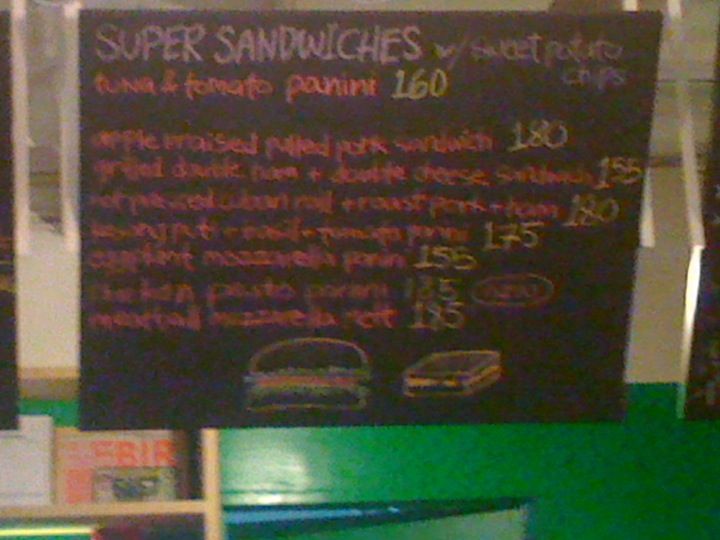 SUPER SANDWICHES w/ sweet potato chips
tuna & tomato panini 160
apple braised pulled pork sandwich 180
grilled double ham + double cheese sandwich 155
hot pressed cuban roll + roast pork + ham 180
kesong puti + basil + tomato panini 175
eggplant mozzarella panini 155
chicken pesto panini 185 new
meatball mozzarella melt 185